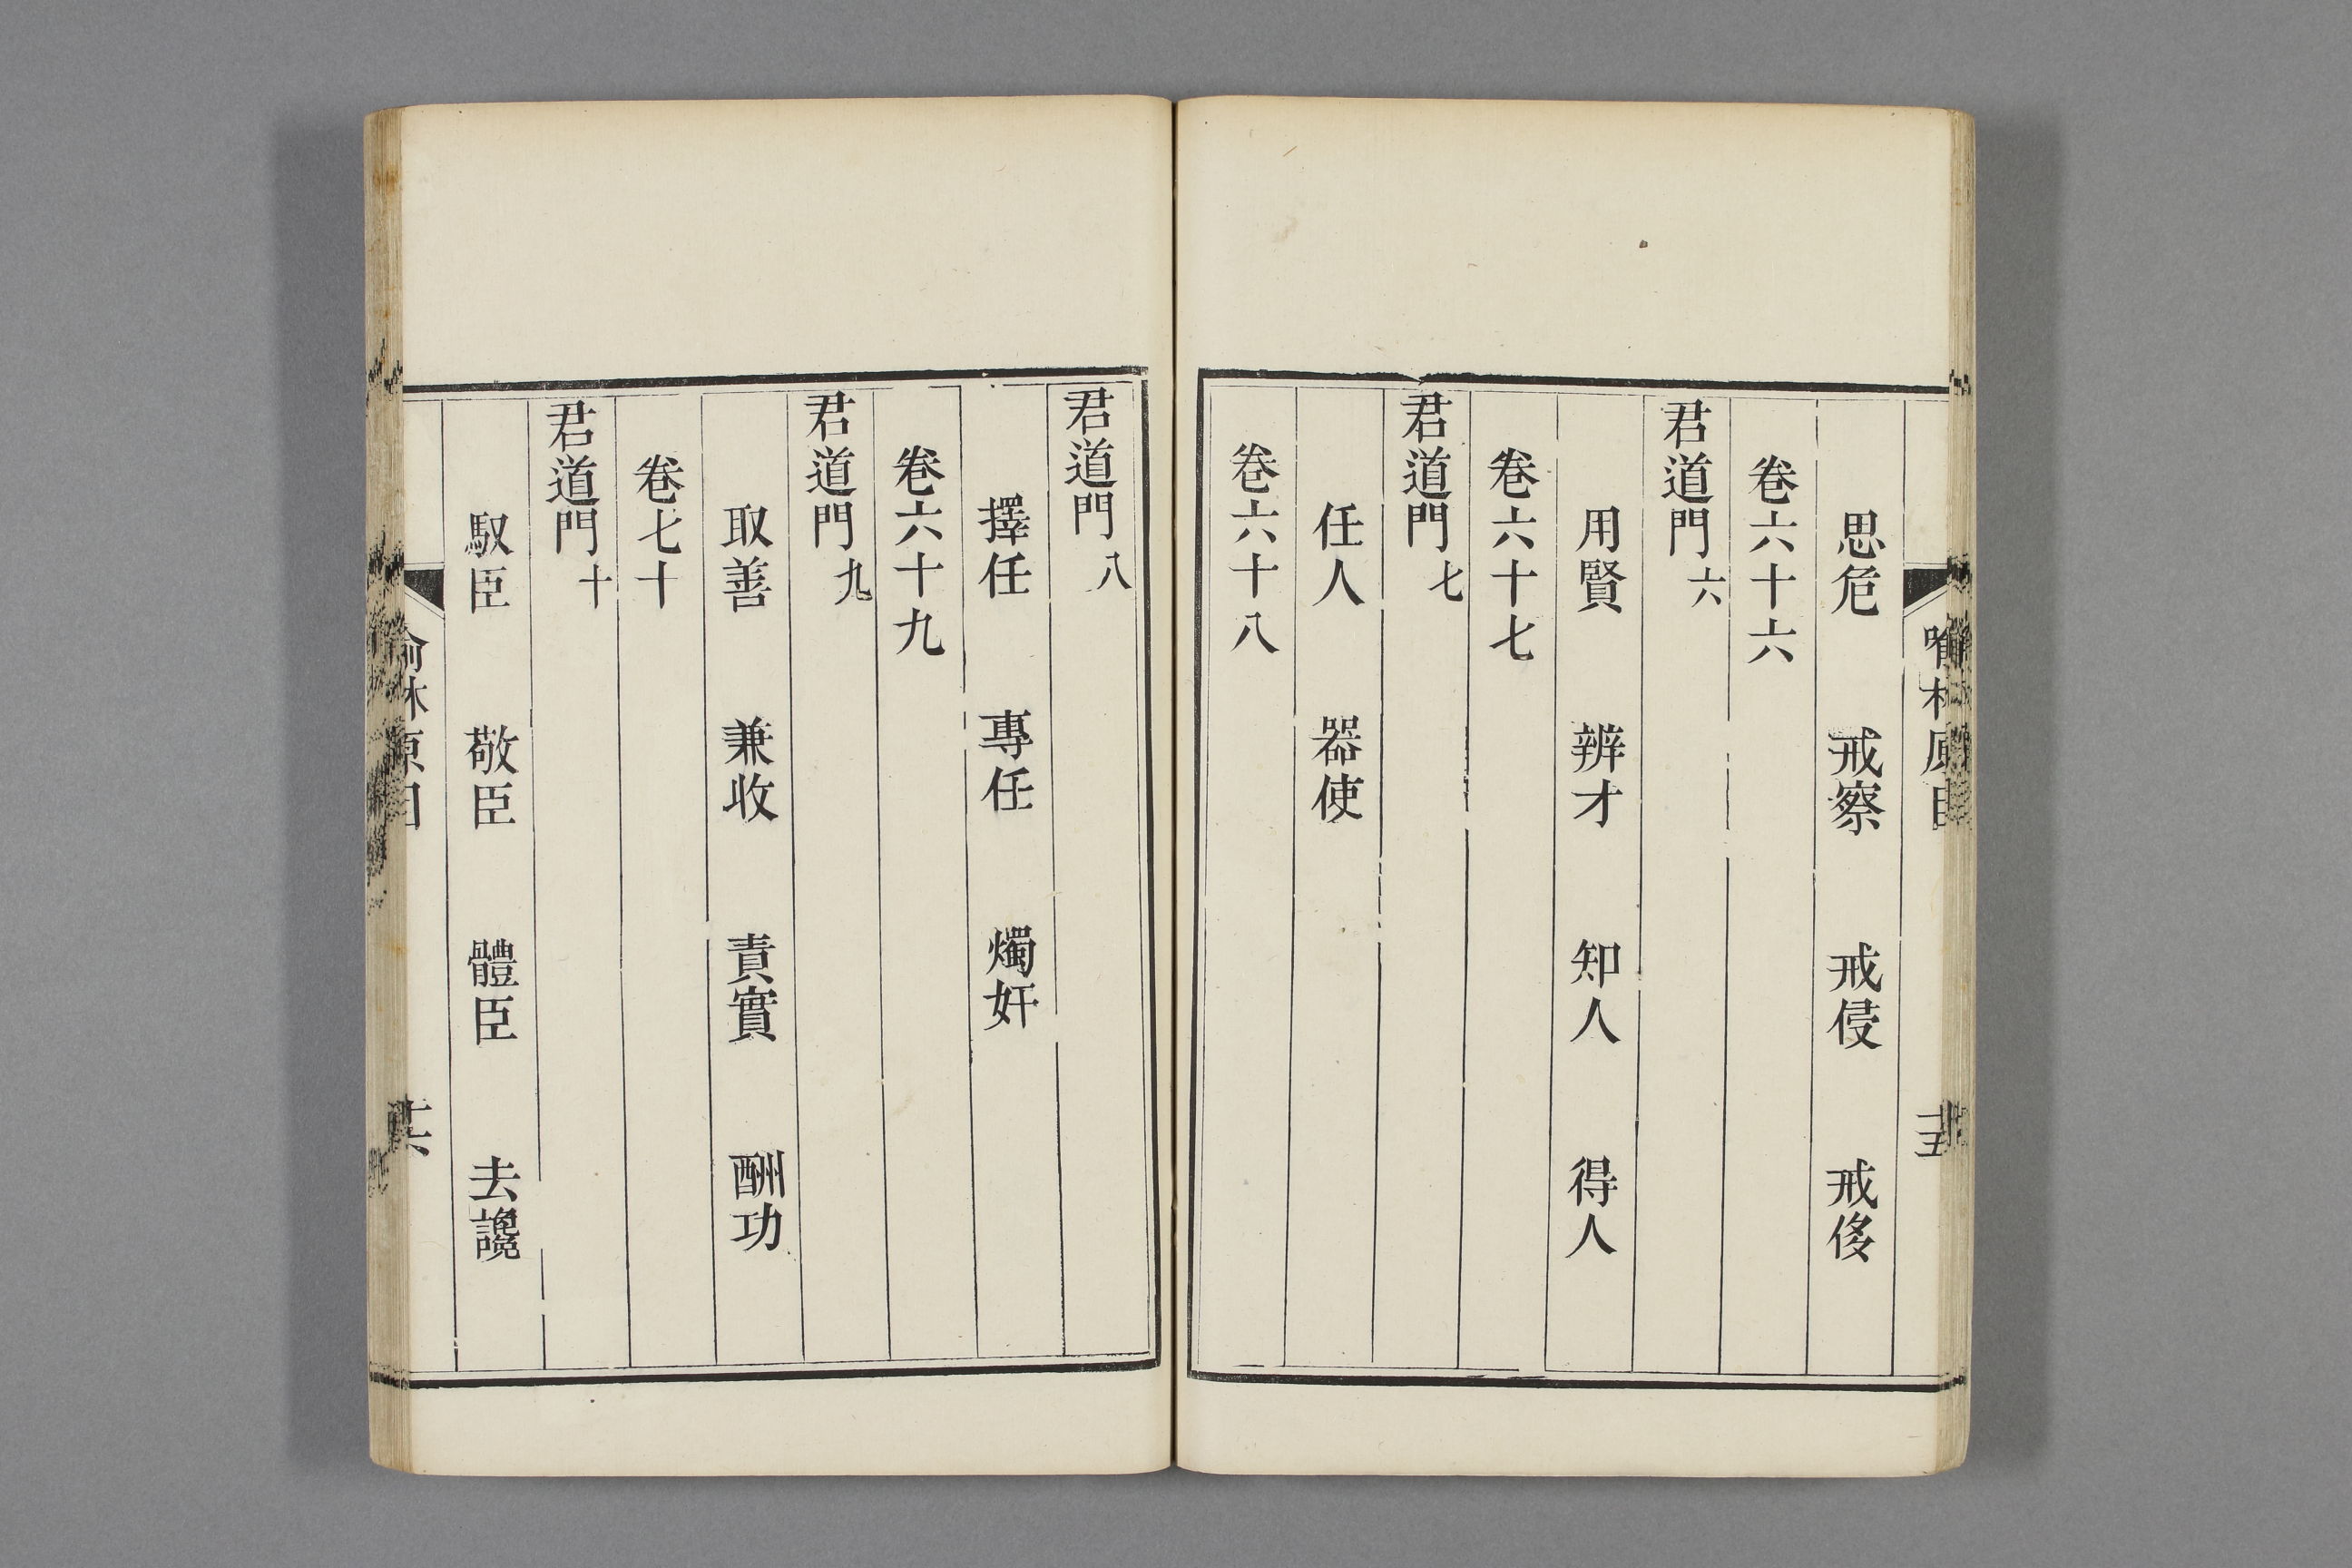 思危　戒察　戒侵　戒侈
卷六十六
君道門六
用賢　辨才　知人　得人
卷六十七
君道門七
任人　器使
卷六十八
君道門八
擇任　專任　燭奸
卷六十九
君道門九
取善　兼收　責實　酬功
卷七十
君道門十
馭臣　敬臣　體臣　去讒